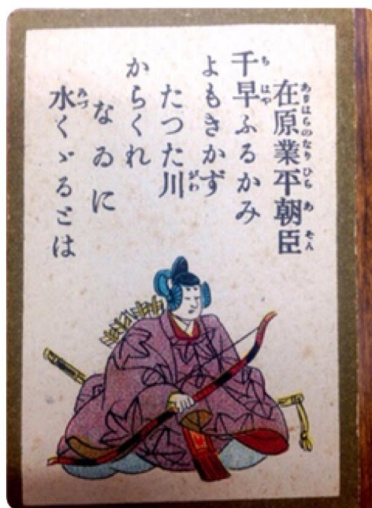 在原業平朝臣
千早ふるかみ
よもきかず
たつた川
からくれ
なゐに
水くゞるとは